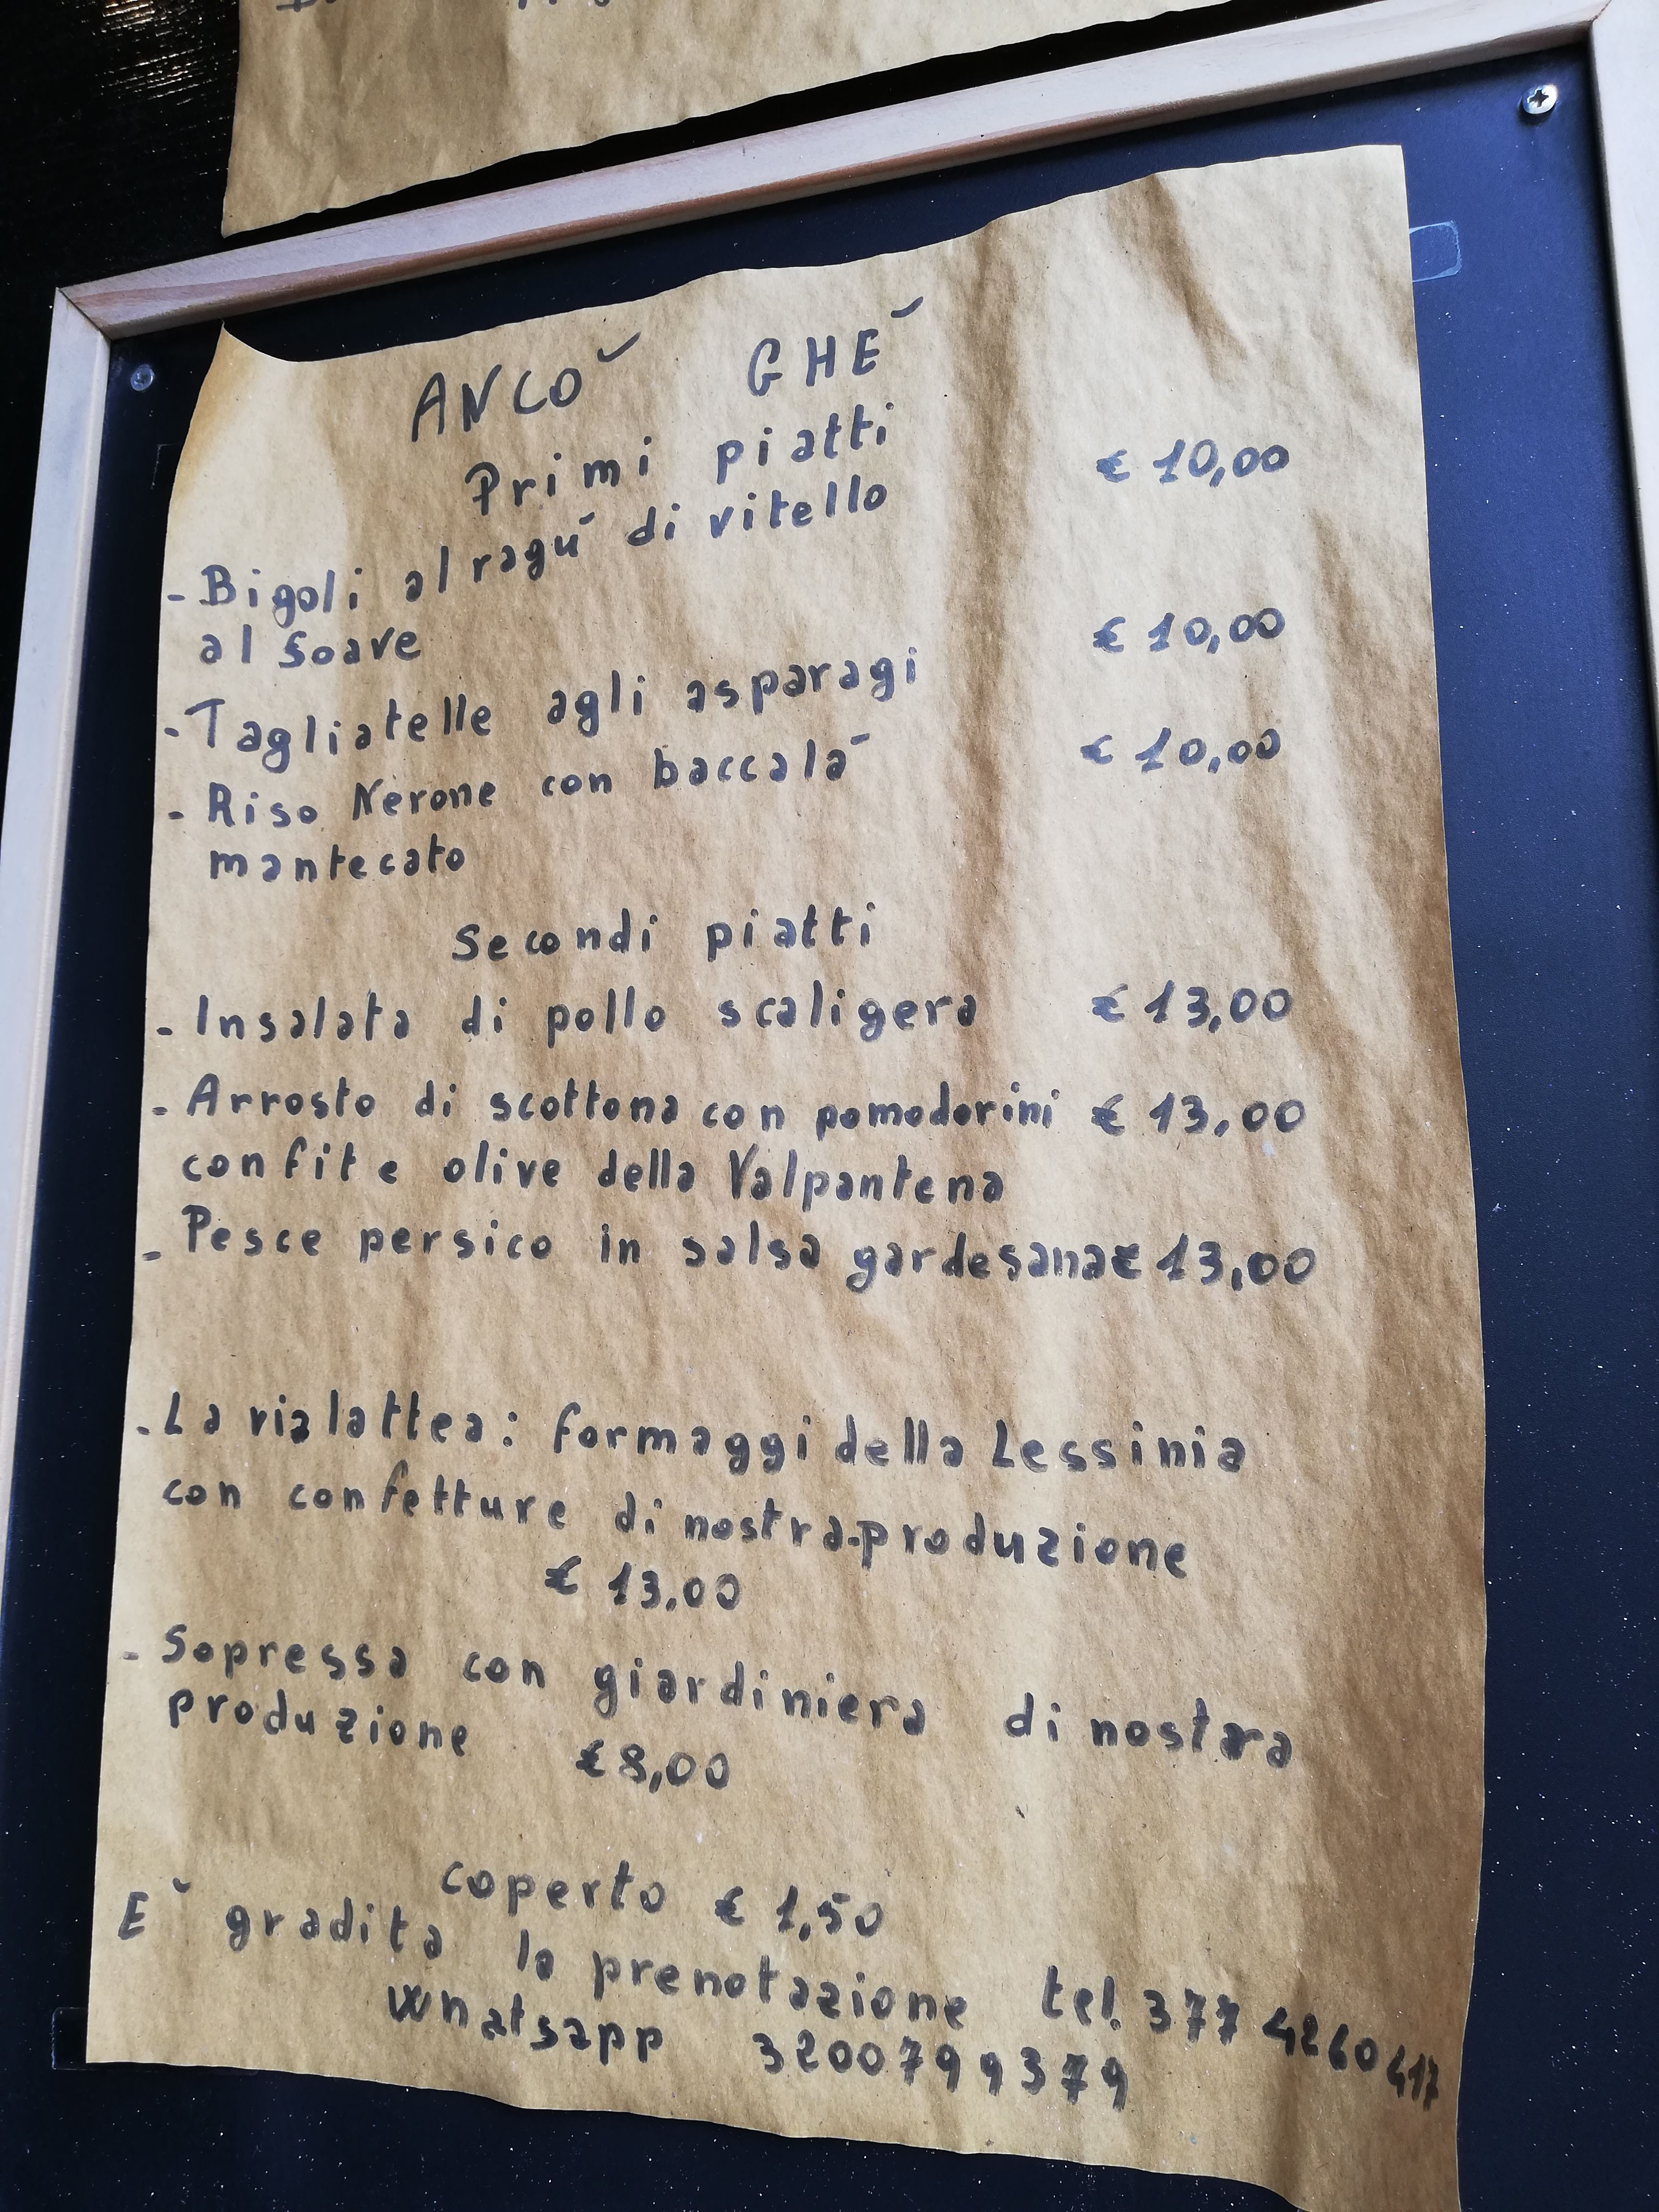 ANCO´ GHE´
Primi piatti
- Bigoli al ragu´ di vitello € 10,00
al Soave
- Tagliatelle agli asparagi € 10,00
- Riso Nerone con baccala´ € 10,00
mantecato
Secondi piatti
- Insalata di pollo scaligera € 13,00
- Arrosto di scottona con pomodorini € 13,00
confit e olive della Valpantena
- Pesce persico in salsa gardesana € 13,00
- La via lattea: formaggi della Lessinia
con confetture di nostra produzione
€ 13,00
- Sopressa con giardiniera di nostra
produzione € 8,00
coperto € 1,50
E´ gradita la prenotazione tel. 377 4260417
Whatsapp 3200799379